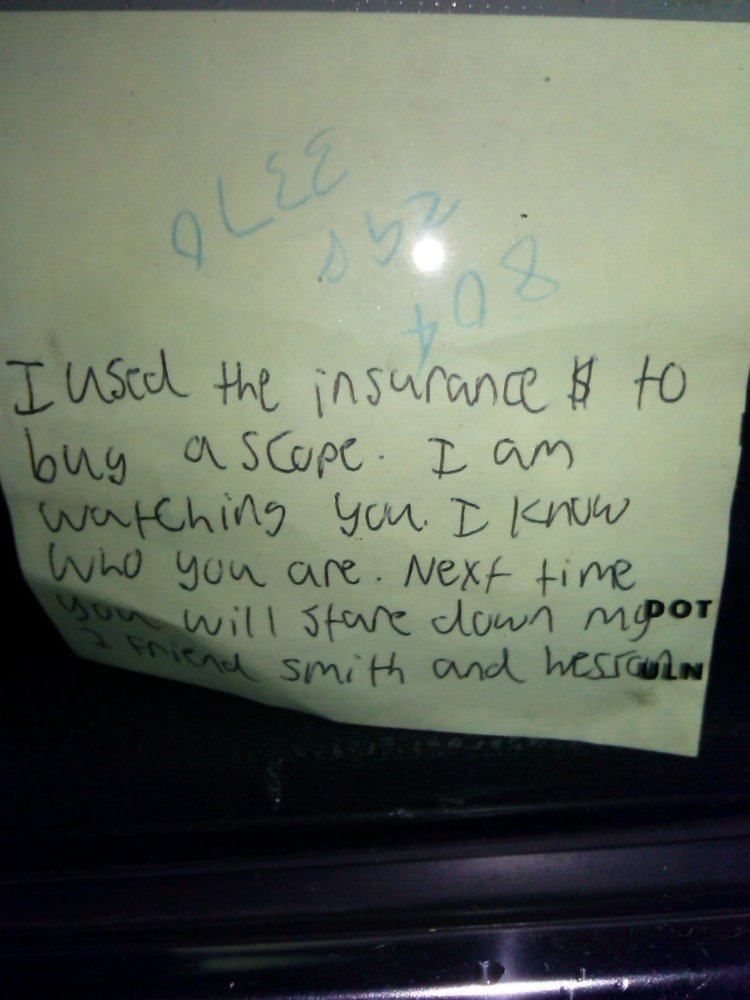 804
3370
I used the insurance $ to
buy a scope. I am
watching you. I know
who you are. Next time
you will stare down my
2 friend smith and wesson
DOT